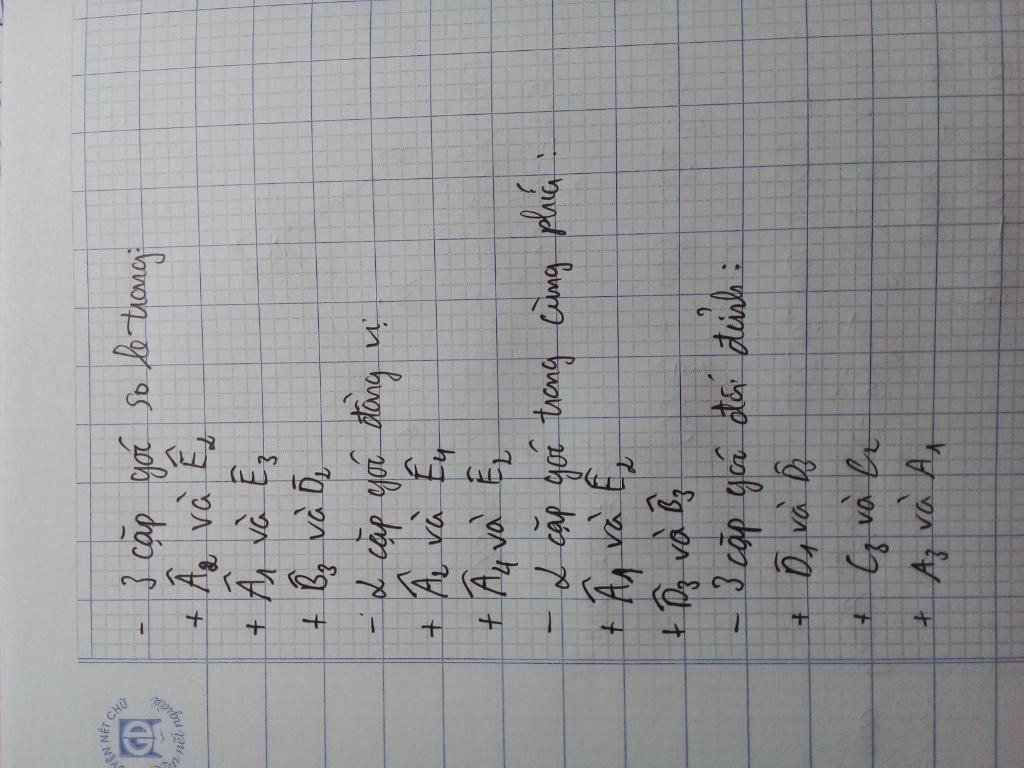 - 3 cặp góc so le trong:
+ Â₂ và Ê₂
+ Â₁ và Ê₃
+ B̂₃ và D̂₂
- 2 cặp góc đồng vị:
+ Â₂ và Ê₄
+ Â₄ và Ê₂
- 2 cặp góc trong cùng phía:
+ Â₁ và Ê₂
+ D̂₃ và B̂₃
- 3 cặp góc đối đỉnh:
+ D̂₁ và D̂₃
+ C₃ và C₂
+ A₃ và A₁
NÉT CHỮ
nết người